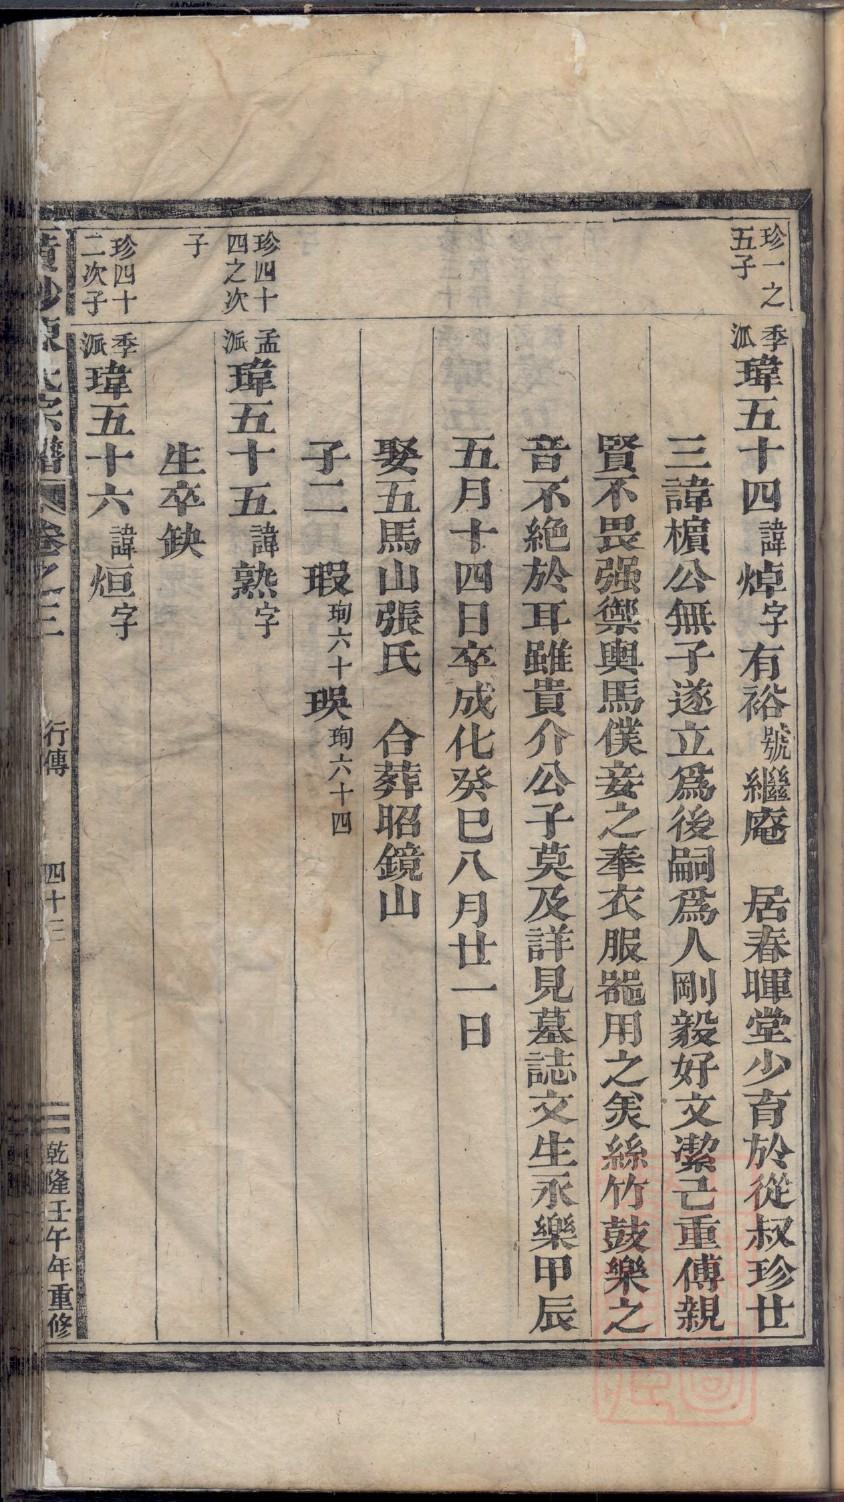 珍一之
五子
季
派
瑋五十四諱焯字有裕號繼庵　居春暉堂少育於從叔珍廿
三諱檳公無子遂立爲後嗣爲人剛毅好文潔己重傅親
賢不畏强禦輿馬僕妾之奉衣服器用之美絲竹鼓樂之
音不絶於耳雖貴介公子莫及詳見墓誌文生永樂甲辰
五月十四日卒成化癸巳八月廿一日
娶五馬山張氏　合葬昭鏡山
子二　瑕珣六十　珢珣六十四
珍四十
四之次
子
孟
派
瑋五十五諱熟字
生卒缺
珍四十
二次子
季
派
瑋五十六諱烜字
宗譜　卷之三　行傳　四十三　乾隆壬午年重修